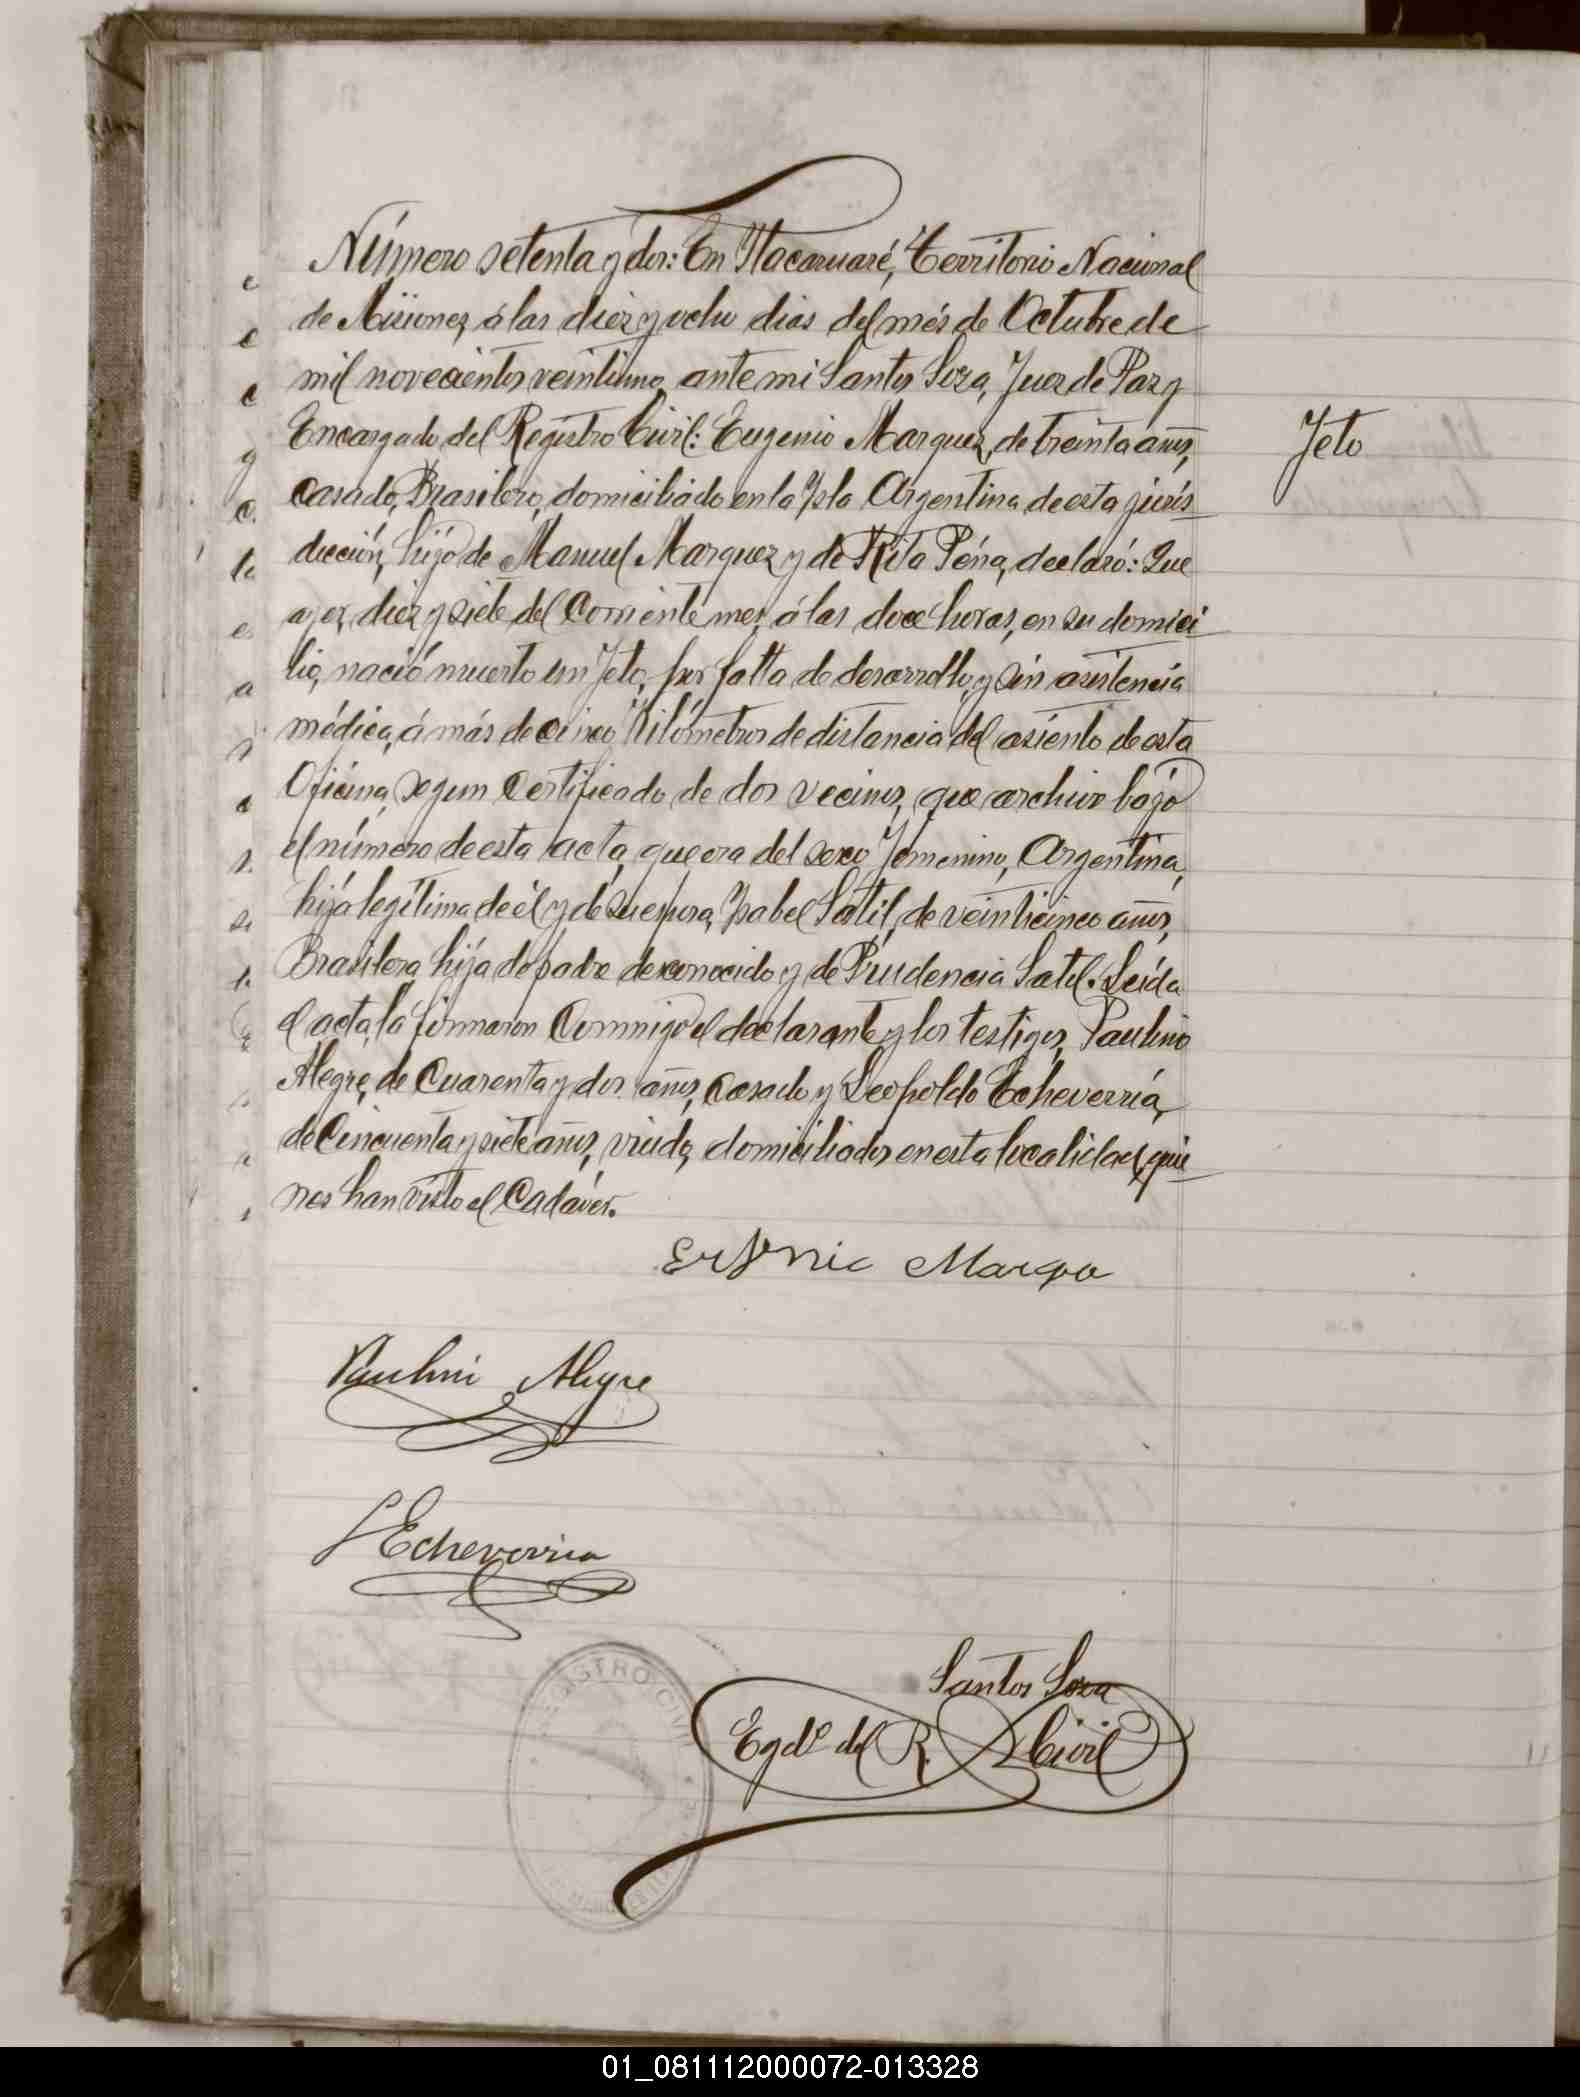 Número setenta y dos: En Ytacaruaré, Territorio Nacional
de Misiones, á las diez y ocho dias del més de Octubre de
mil novecientos veintiuno, ante mi Santos Soza, Juez de Paz y
Encargado del Registro Civil: Eugenio Marquez, de treinta años,
Casado, Brasilero, domiciliado en la Ysla Argentina de esta juris-
dicción, hijo de Manuel Marquez y de Rita Péna, declaró: Que
ayer, diez y siete del Corriente mes, á las doce horas, en su domici-
lio, nació muerto un feto, por falta de desarrollo, y sin asistencia
médica, á más de cinco Kilómetros de distancia del asiento de esta
Oficina, segun Certificado de dos vecinos, que archivo bajo
el número de esta acta, que era del sexo femenino, Argentina,
hija legítima de él y de su esposa, Ysabel Satil, de veinticinco años,
Brasilera, hija de padre desconocido y de Prudencia Satil. Leída
el acta, la firmaron Conmigo el declarante y los testigos, Paulino
Alegre, de Cuarenta y dos años, Casado y Leopoldo Echeverría,
de Cincuenta y siete años, viudo, domiciliados en esta localidad, quie-
nes han visto el Cadáver.
Feto
Marqu
Paulini Alegre
L Echeverria
Santos Soza
Egdo del R. Civil
REGISTRO CIVIL
01_081112000072-013328